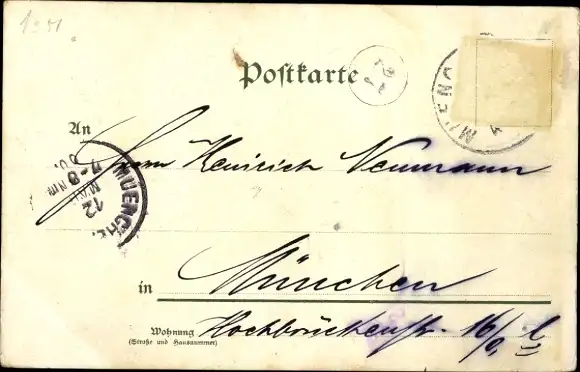 1051
Postkarte
MUENC
An
Herrn Heinrich Neumann
MUENCHE.
12
MAI
7-8 Nm
00.
in
München
Wohnung
(Straße und Hausnummer)
Hochbrückenstr. 16/0 l